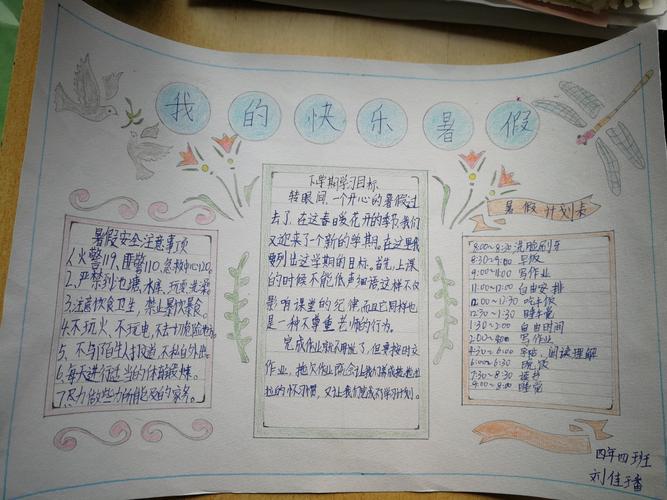 我的快乐暑假
暑假安全注意事项
1.火警119、匪警110、急救中心120。
2.严禁到池塘、水库、玩耍、洗澡
3.注意饮食卫生,禁止暴饮暴食。
4.不玩火、不玩电,不去十分危险地方
5、不与陌生人打交道,不私自外出。
6.每天进行适当的体育锻炼。
7.尽力做些力所能及的家务。
下学期学习目标
转眼间,一个开心的暑假过
去了,在这春暖花开的季节,我们
又迎来了个新的学期。在这里我
要列出这学期的目标。首先,上课
的时候不能低声细语这样不仅
影响课堂的纪律,而且它同样也
是一种不尊重老师的行为。
完成作业就不用说了,但要按时交
作业,拖欠作业既会让我们养成拖拖拉
拉的坏习惯,又让我们完成不了学习计划。
暑假计划表
8:00~8:30 洗脸刷牙
8:30~9:00 早饭
9:00~11:00 写作业
11:00~12:00 自由安排
12:00~12:30 吃午饭
12:30~1:30 睡午觉
1:30~2:00 自由时间
2:00~4:00 写作业
4:30~6:00 阅读理解
6:00~6:30 晚饭
7:30~8:30 读书
9:00~8:00 睡觉
四年四班
刘佳